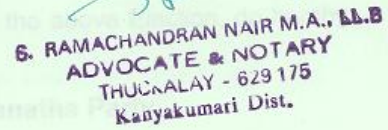 S. RAMACHANDRAN NAIR M.A., LL.B
ADVOCATE & NOTARY
THUCKALAY - 629 175
Kanyakumari Dist.